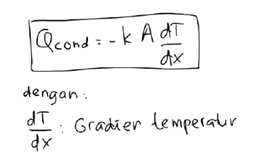 Qcond = -k A dT/dx
dengan:
dT/dx : Gradien temperatur